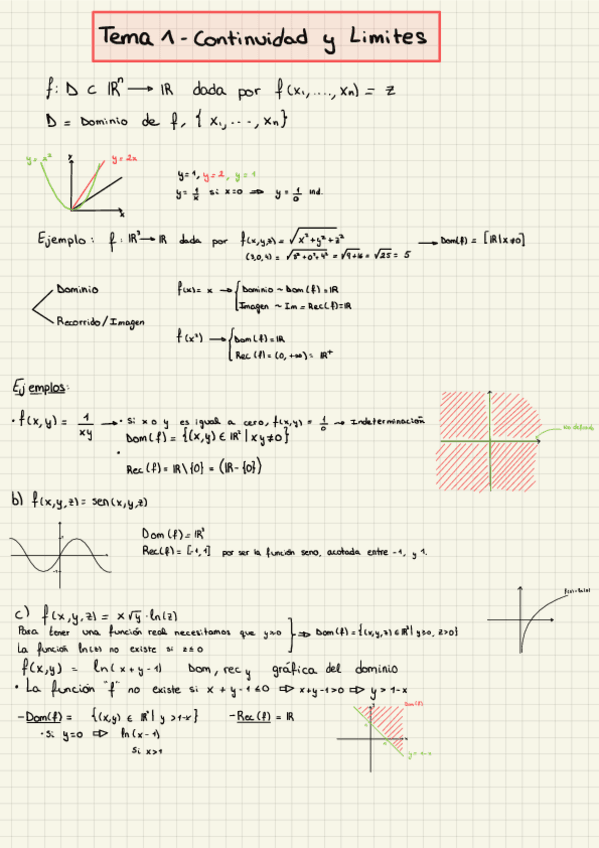 Tema 1 - Continuidad y Limites
f: D ⊂ ℝⁿ → ℝ dada por f(x₁,....,xₙ) = z
D = Dominio de f, { x₁,---,xₙ}
y=x² y y=2x
x
y=1, y=2, y=1
y= 1/x si x=0 ⇒ y= 1/0 ind.
Ejemplo: f: ℝ³→ℝ dada por f(x,y,z)= √x²+y²+z² → Dom(f) = [ℝ|x≠0]
(3,0,4) = √3²+0²+4² = √9+16 = √25 = 5
Dominio
Recorrido/Imagen
f(x)= x → { Dominio ~ Dom(f)=ℝ
Imagen ~ Im = Rec(f)=ℝ
f(x²) → { Dom(f)=ℝ
Rec(f)=(0,+∞)= ℝ⁺
Ejemplos:
· f(x,y) = 1/xy → · Si x o y es igual a cero, f(x,y) = 1/0 → Indeterminación
Dom(f) = {(x,y) ∈ ℝ² | xy≠0}
·
Rec(f)= ℝ\{0} = (ℝ-{0})
No definido
b) f(x,y,z)= sen(x,y,z)
Dom(f)=ℝ³
Rec(f)= [-1,1] por ser la función seno, acotada entre -1, y 1.
c) f(x,y,z)= x√y · ln(z)
Para tener una función real necesitamos que y≥0
La función ln(z) no existe si z≤0
} ⇒ Dom(f)={(x,y,z)∈ℝ³| y≥0, z>0}
f(x,y) = ln(x+y-1) Dom, rec y gráfica del dominio
· La función "f" no existe si x+y-1≤0 ⇒ x+y-1>0 ⇒ y>1-x
- Dom(f)= {(x,y) ∈ ℝ² | y>1-x} - Rec(f) = ℝ
· Si y=0 ⇒ ln(x-1)
Si x>1
Dom(f)
y=1-x